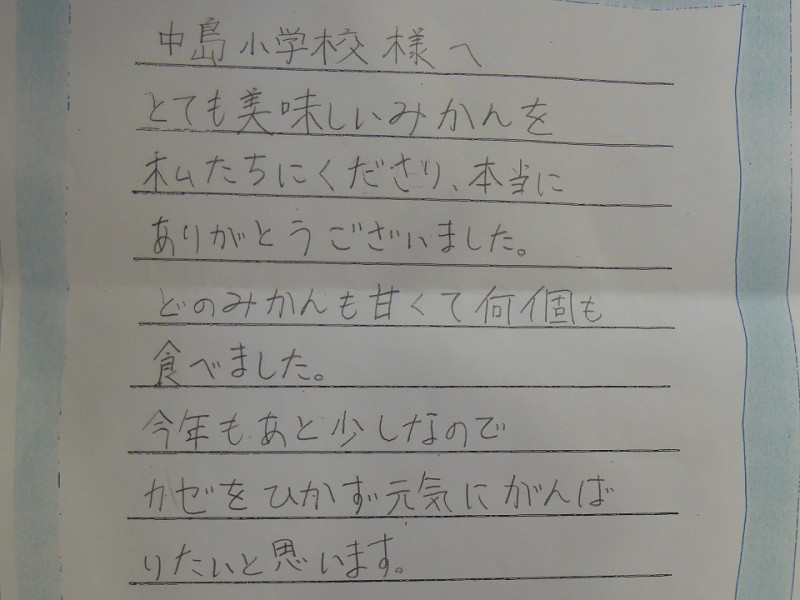 中島小学校 様へ
とても美味しいみかんを
私たちにくださり、本当に
ありがとうございました。
どのみかんも甘くて何個も
食べました。
今年もあと少しなので
カゼをひかず元気にがんば
りたいと思います。